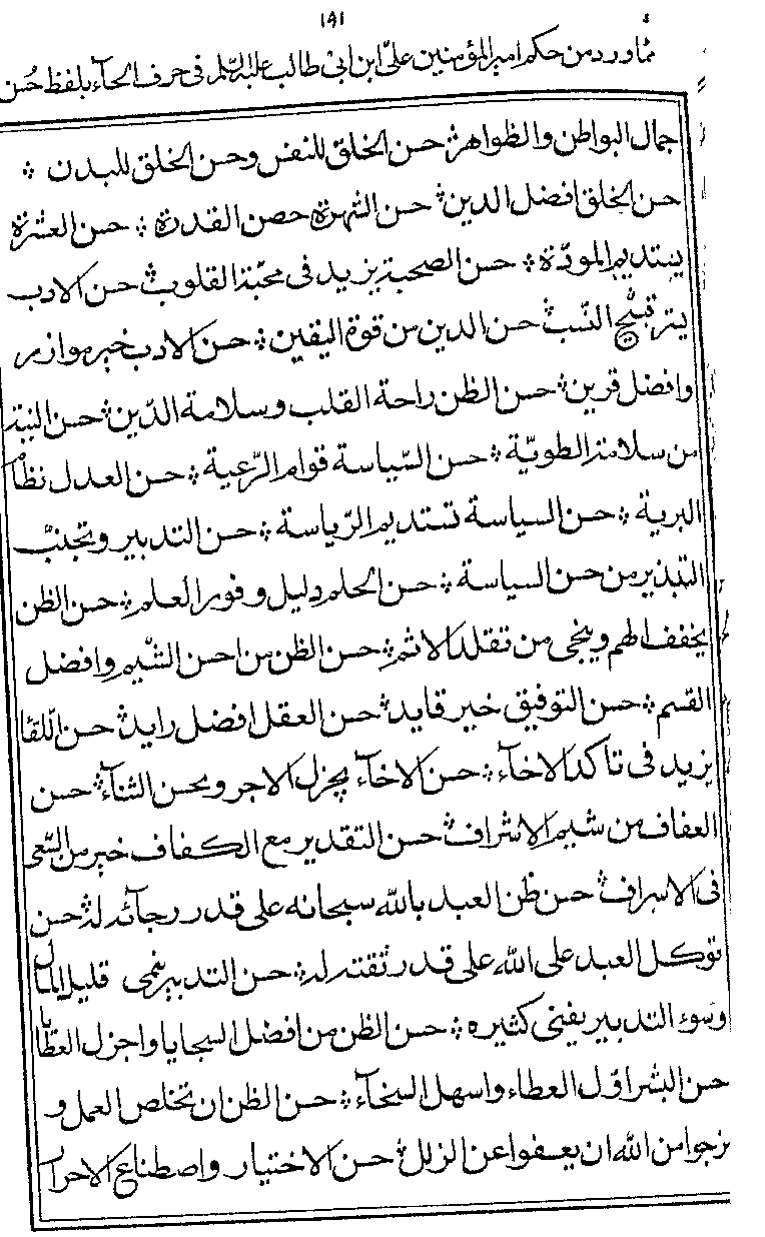 ١٩١
مما ورد من حكم امير المؤمنين علىّ ابن ابى طالب عليه السّلم فى حرف الحآء بلفظ حُسن
جمال البواطن والظواهر؛ حسن الخلق للنفس وحسن الخلق للبدن ؛
حسن الخلق افضل الدين؛ حسن الشهرة حصن القدرة ؛ حسن العشرة
يستديم المودّة ؛ حسن الصحبة يزيد فى محبّة القلوب؛ حسن الادب
يستر قبيح النّسب؛ حسن الدين من قوة اليقين ؛ حسن الادب خير موازر
وافضل قرين؛ حسن الظن راحة القلب وسلامة الدّين؛ حسن النية
من سلامة الطويّة ؛ حسن السّياسة قوام الرّعية ؛ حسن العدل نظام
البرية ؛ حسن السياسة تستديم الرّياسة ؛ حسن التدبير وتجنّب
التبذير من حسن السياسة ؛ حسن الحلم دليل وفور العلم؛ حسن الظن
يخفف الهم وينجى من تقلد الاثم؛ حسن الظن من احسن الشّيم وافضل
القسم ؛ حسن التوفيق خير قايد؛ حسن العقل افضل رايد؛ حسن اللّقآ
يزيد فى تاكد الاخآء ؛ حسن الاخآء يجزل الاجر ويحسن الثنآء؛ حسن
العفاف من شيم الاشراف؛ حسن التقدير مع الكفاف خير من السّعى
فى الاسراف؛ حسن ظن العبد بالله سبحانه على قدر رجآئه له؛ حسن
توكل العبد على الله على قدر ثقته له؛ حسن التدبير ينمى قليل المال
وسوء التدبير يفنى كثيره ؛ حسن الظن من افضل السجايا واجزل العطايا
حسن البشر اوّل العطاء واسهل السخآء ؛ حسن الظن ان تخلص العمل و
ترجوا من الله ان يعفوا عن الزلل؛ حسن الاختيار واصطناع الاحرار